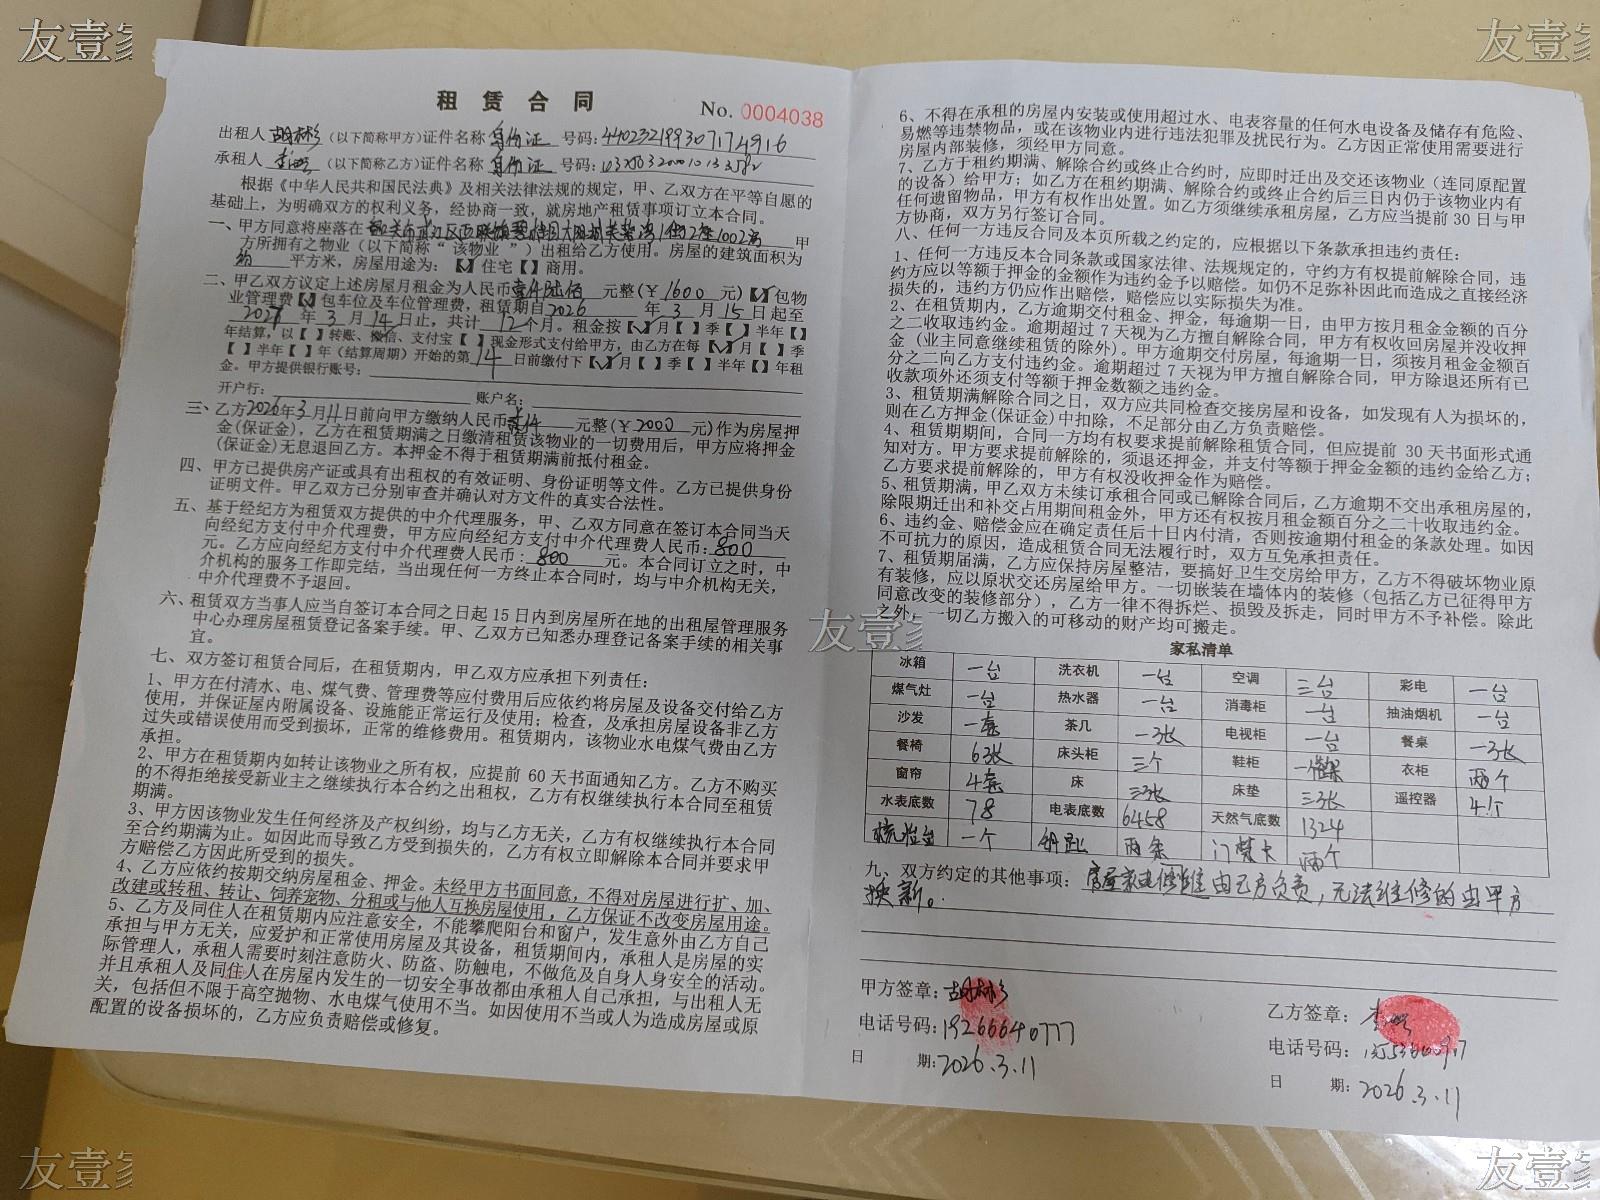 友壹家
友壹家
租赁合同
No. 0004038
出租人 胡彬彡 (以下简称甲方)证件名称 身份证 号码:440232199307174916
承租人 (以下简称乙方)证件名称 身份证 号码:
根据《中华人民共和国民法典》及相关法律法规的规定，甲、乙双方在平等自愿的
基础上，为明确双方的权利义务，经协商一致，就房地产租赁事项订立本合同。
一、甲方同意将座落在 韶关市武江区西联镇 1002房 甲
方所拥有之物业（以下简称“ 该物业 ”）出租给乙方使用。房屋的建筑面积为
约 平方米，房屋用途为：【✓】住宅【 】商用。
二、甲乙双方议定上述房屋月租金为人民币 壹仟陆佰 元整(￥ 1600 元)【✓】包物
业管理费【✓】包车位及车位管理费，租赁期自 2026 年 3 月 15 日起至
2027 年 3 月 14 日止，共计 12 个月。租金按【✓】月【 】季【 】半年【 】
年结算，以【 】转账、微信、支付宝【 】现金形式支付给甲方，由乙方在每【✓】月【 】季
【 】半年【 】年（结算周期）开始的第 14 日前缴付下【✓】月【 】季【 】半年【 】年租
金。甲方提供银行账号：
开户行： 账户名：
三、乙方2026年3月11日前向甲方缴纳人民币 贰仟 元整(￥ 2000 元)作为房屋押
金(保证金)，乙方在租赁期满之日缴清租赁该物业的一切费用后，甲方应将押金
(保证金)无息退回乙方。本押金不得于租赁期满前抵付租金。
四、甲方已提供房产证或具有出租权的有效证明、身份证明等文件。乙方已提供身份
证明文件。甲乙双方已分别审查并确认对方文件的真实合法性。
五、基于经纪方为租赁双方提供的中介代理服务，甲、乙双方同意在签订本合同当天
向经纪方支付中介代理费，甲方应向经纪方支付中介代理费人民币：800
元。乙方应向经纪方支付中介代理费人民币：800 元。本合同订立之时，中
介机构的服务工作即完结，当出现任何一方终止本合同时，均与中介机构无关，
中介代理费不予退回。
六、租赁双方当事人应当自签订本合同之日起 15 日内到房屋所在地的出租屋管理服务
中心办理房屋租赁登记备案手续。甲、乙双方已知悉办理登记备案手续的相关事
宜。
七、双方签订租赁合同后，在租赁期内，甲乙双方应承担下列责任：
1、甲方在付清水、电、煤气费、管理费等应付费用后应依约将房屋及设备交付给乙方
使用，并保证屋内附属设备、设施能正常运行及使用；检查，及承担房屋设备非乙方
过失或错误使用而受到损坏，正常的维修费用。租赁期内，该物业水电煤气费由乙方
承担。
2、甲方在租赁期内如转让该物业之所有权，应提前 60 天书面通知乙方。乙方不购买
的不得拒绝接受新业主之继续执行本合约之出租权，乙方有权继续执行本合同至租赁
期满。
3、甲方因该物业发生任何经济及产权纠纷，均与乙方无关，乙方有权继续执行本合同
至合约期满为止。如因此而导致乙方受到损失的，乙方有权立即解除本合同并要求甲
方赔偿乙方因此所受到的损失。
4、乙方应依约按期交纳房屋租金、押金。未经甲方书面同意，不得对房屋进行扩、加、
改建或转租、转让、饲养宠物、分租或与他人互换房屋使用，乙方保证不改变房屋用途。
5、乙方及同住人在租赁期内应注意安全，不能攀爬阳台和窗户，发生意外由乙方自己
承担与甲方无关，应爱护和正常使用房屋及其设备，租赁期间内，承租人是房屋的实
际管理人，承租人需要时刻注意防火、防盗、防触电，不做危及自身人身安全的活动。
并且承租人及同住人在房屋内发生的一切安全事故都由承租人自己承担，与出租人无
关，包括但不限于高空抛物、水电煤气使用不当。如因使用不当或人为造成房屋或原
配置的设备损坏的，乙方应负责赔偿或修复。
6、不得在承租的房屋内安装或使用超过水、电表容量的任何水电设备及储存有危险、
易燃等违禁物品，或在该物业内进行违法犯罪及扰民行为。乙方因正常使用需要进行
房屋内部装修，须经甲方同意。
7、乙方于租约期满、解除合约或终止合约时，应即时迁出及交还该物业（连同原配置
的设备）给甲方；如乙方在租约期满、解除合约或终止合约后三日内仍于该物业内有
任何遗留物品，甲方有权作出处置。如乙方须继续承租房屋，乙方应当提前 30 日与甲
方协商，双方另行签订合同。
八、任何一方违反合同及本页所载之约定的，应根据以下条款承担违约责任：
1、任何一方违反本合同条款或国家法律、法规规定的，守约方有权提前解除合同，违
约方应以等额于押金的金额作为违约金予以赔偿。如仍不足弥补因此而造成之直接经济
损失的，违约方仍应作出赔偿，赔偿应以实际损失为准。
2、在租赁期内，乙方逾期交付租金、押金，每逾期一日，由甲方按月租金金额的百分
之二收取违约金。逾期超过 7 天视为乙方擅自解除合同，甲方有权收回房屋并没收押
金（业主同意继续租赁的除外）。甲方逾期交付房屋，每逾期一日，须按月租金金额百
分之二向乙方支付违约金。逾期超过 7 天视为甲方擅自解除合同，甲方除退还所有已
收款项外还须支付等额于押金数额之违约金。
3、租赁期满解除合同之日，双方应共同检查交接房屋和设备，如发现有人为损坏的，
则在乙方押金(保证金)中扣除，不足部分由乙方负责赔偿。
4、租赁期期间，合同一方均有权要求提前解除租赁合同，但应提前 30 天书面形式通
知对方。甲方要求提前解除的，须退还押金，并支付等额于押金金额的违约金给乙方；
乙方要求提前解除的，甲方有权没收押金作为赔偿。
5、租赁期满，甲乙双方未续订承租合同或已解除合同后，乙方逾期不交出承租房屋的，
除限期迁出和补交占用期间租金外，甲方还有权按月租金额百分之二十收取违约金。
6、违约金、赔偿金应在确定责任后十日内付清，否则按逾期付租金的条款处理。如因
不可抗力的原因，造成租赁合同无法履行时，双方互免承担责任。
7、租赁期届满，乙方应保持房屋整洁，要搞好卫生交房给甲方，乙方不得破坏物业原
有装修，应以原状交还房屋给甲方。一切嵌装在墙体内的装修（包括乙方已征得甲方
同意改变的装修部分），乙方一律不得拆烂、损毁及拆走，同时甲方不予补偿。除此
之外，一切乙方搬入的可移动的财产均可搬走。
友壹家
家私清单
冰箱 一台 洗衣机 一台 空调 三台 彩电 一台
煤气灶 一台 热水器 一台 消毒柜 一台 抽油烟机 一台
沙发 一套 茶几 一张 电视柜 一台 餐桌 一张
餐椅 6张 床头柜 三个 鞋柜 一 衣柜 两个
窗帘 4套 床 三张 床垫 三张 遥控器 4个
水表底数 78 电表底数 6458 天然气底数 1324
梳妆台 一个 钥匙 两条 门禁卡 两个
九、双方约定的其他事项：房屋家电维修由乙方负责，无法维修的由甲方
换新。
甲方签章：胡彬彡
电话号码：19266640777
日 期：2026.3.11
乙方签章：
电话号码：
日 期：2026.3.11
友壹家
友壹家